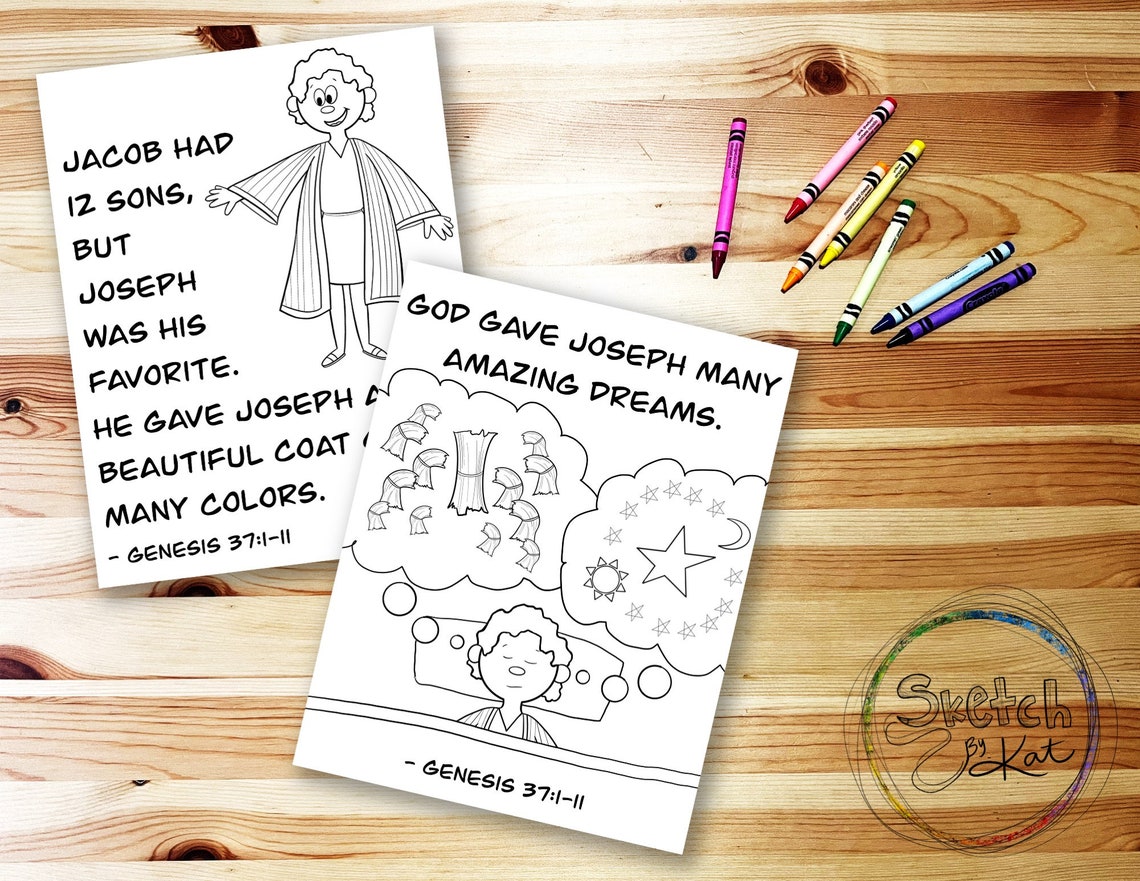 JACOB HAD
12 SONS,
BUT
JOSEPH
WAS HIS
FAVORITE.
HE GAVE JOSEPH A
BEAUTIFUL COAT
MANY COLORS.
- GENESIS 37:1-11
GOD GAVE JOSEPH MANY
AMAZING DREAMS.
- GENESIS 37:1-11
Sketch
By
Kat